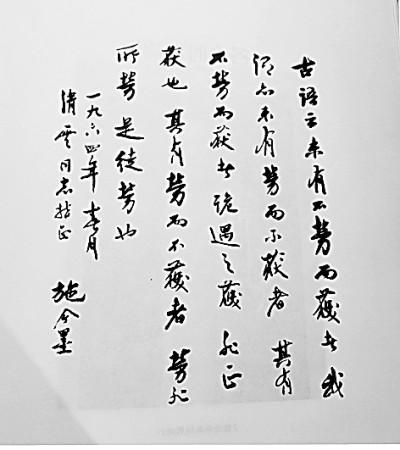 古语云未有不劳而获者 或
谓亦未有劳而不获者 其有
不劳而获者 诡遇之获 非正
获也 其有劳而不获者 劳非
所劳 是徒劳也
一九六四年春月
清云同志指正
施今墨